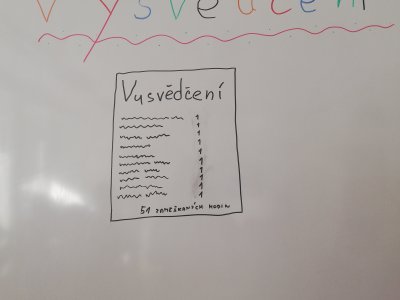 Vysvědčení
Vysvědčení
1
1
1
1
1
1
1
1
1
1
51 ZAMEŠKANÝCH HODIN